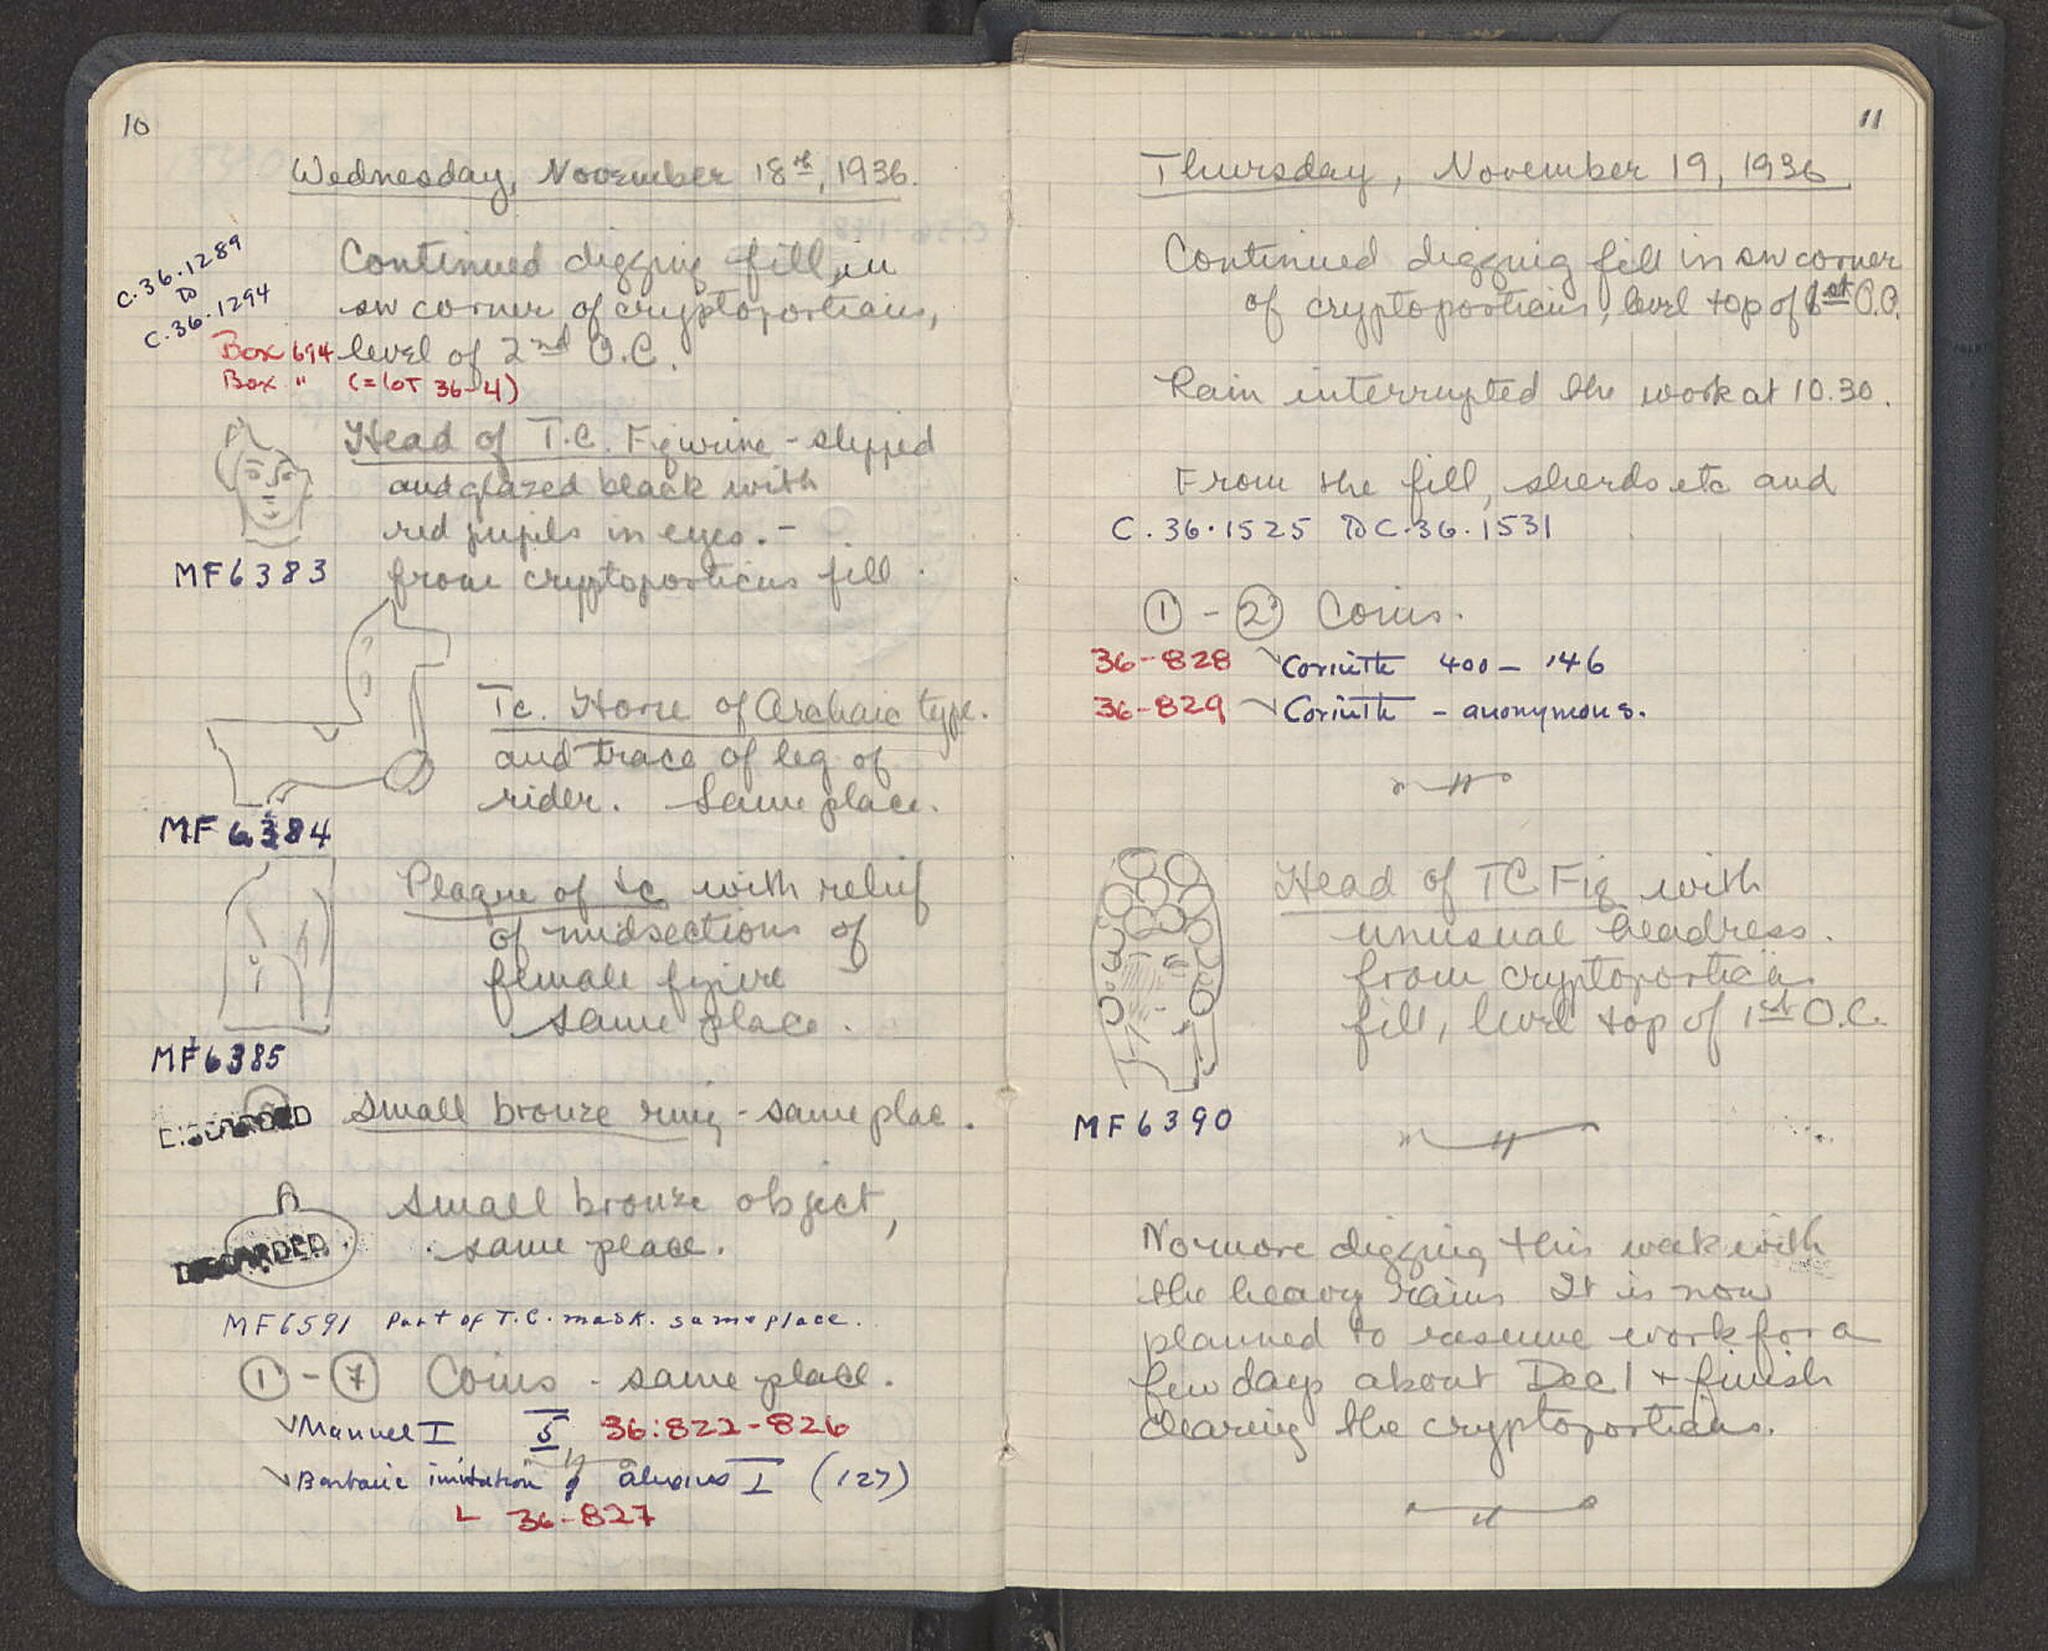 10
Wednesday, November 18th, 1936.
C.36.1289
to
C.36.1294
Continued digging fill, in
SW corner of cryptoporticus,
Box 694 level of 2nd O.C.
Box " (= lot 36-4)
Head of T.C. Figurine - slipped
and glazed black with
red pupils in eyes. -
from cryptoporticus fill.
MF6383
Tc. Horse of Archaic type.
and trace of leg of
rider. Same place.
MF 6384
Plaque of tc with relief
of midsections of
female figure
same place.
MF6385
DISCARDED
Small bronze ring - same place.
Small bronze object,
same place.
DISCARDED
MF6591 Part of T.C. mask. same place.
① - ⑦ Coins - same place.
Manuel I 5 36:822-826
Barbaric imitation of Alexius I (127)
36-827
11
Thursday, November 19, 1936.
Continued digging fill in SW corner
of cryptoporticus, level top of 1st O.C.
Rain interrupted the work at 10.30.
From the fill, sherds etc and
C.36.1525 to C.36.1531
① - ② Coins.
36-828 Corinth 400 - 146
36-829 Corinth - anonymous.
Head of TC Fig with
unusual headress.
from cryptoporticus
fill, level top of 1st O.C.
MF6390
No more digging this week with
the heavy rains It is now
planned to resume work for a
few days about Dec 1 + finish
clearing the cryptoporticus.